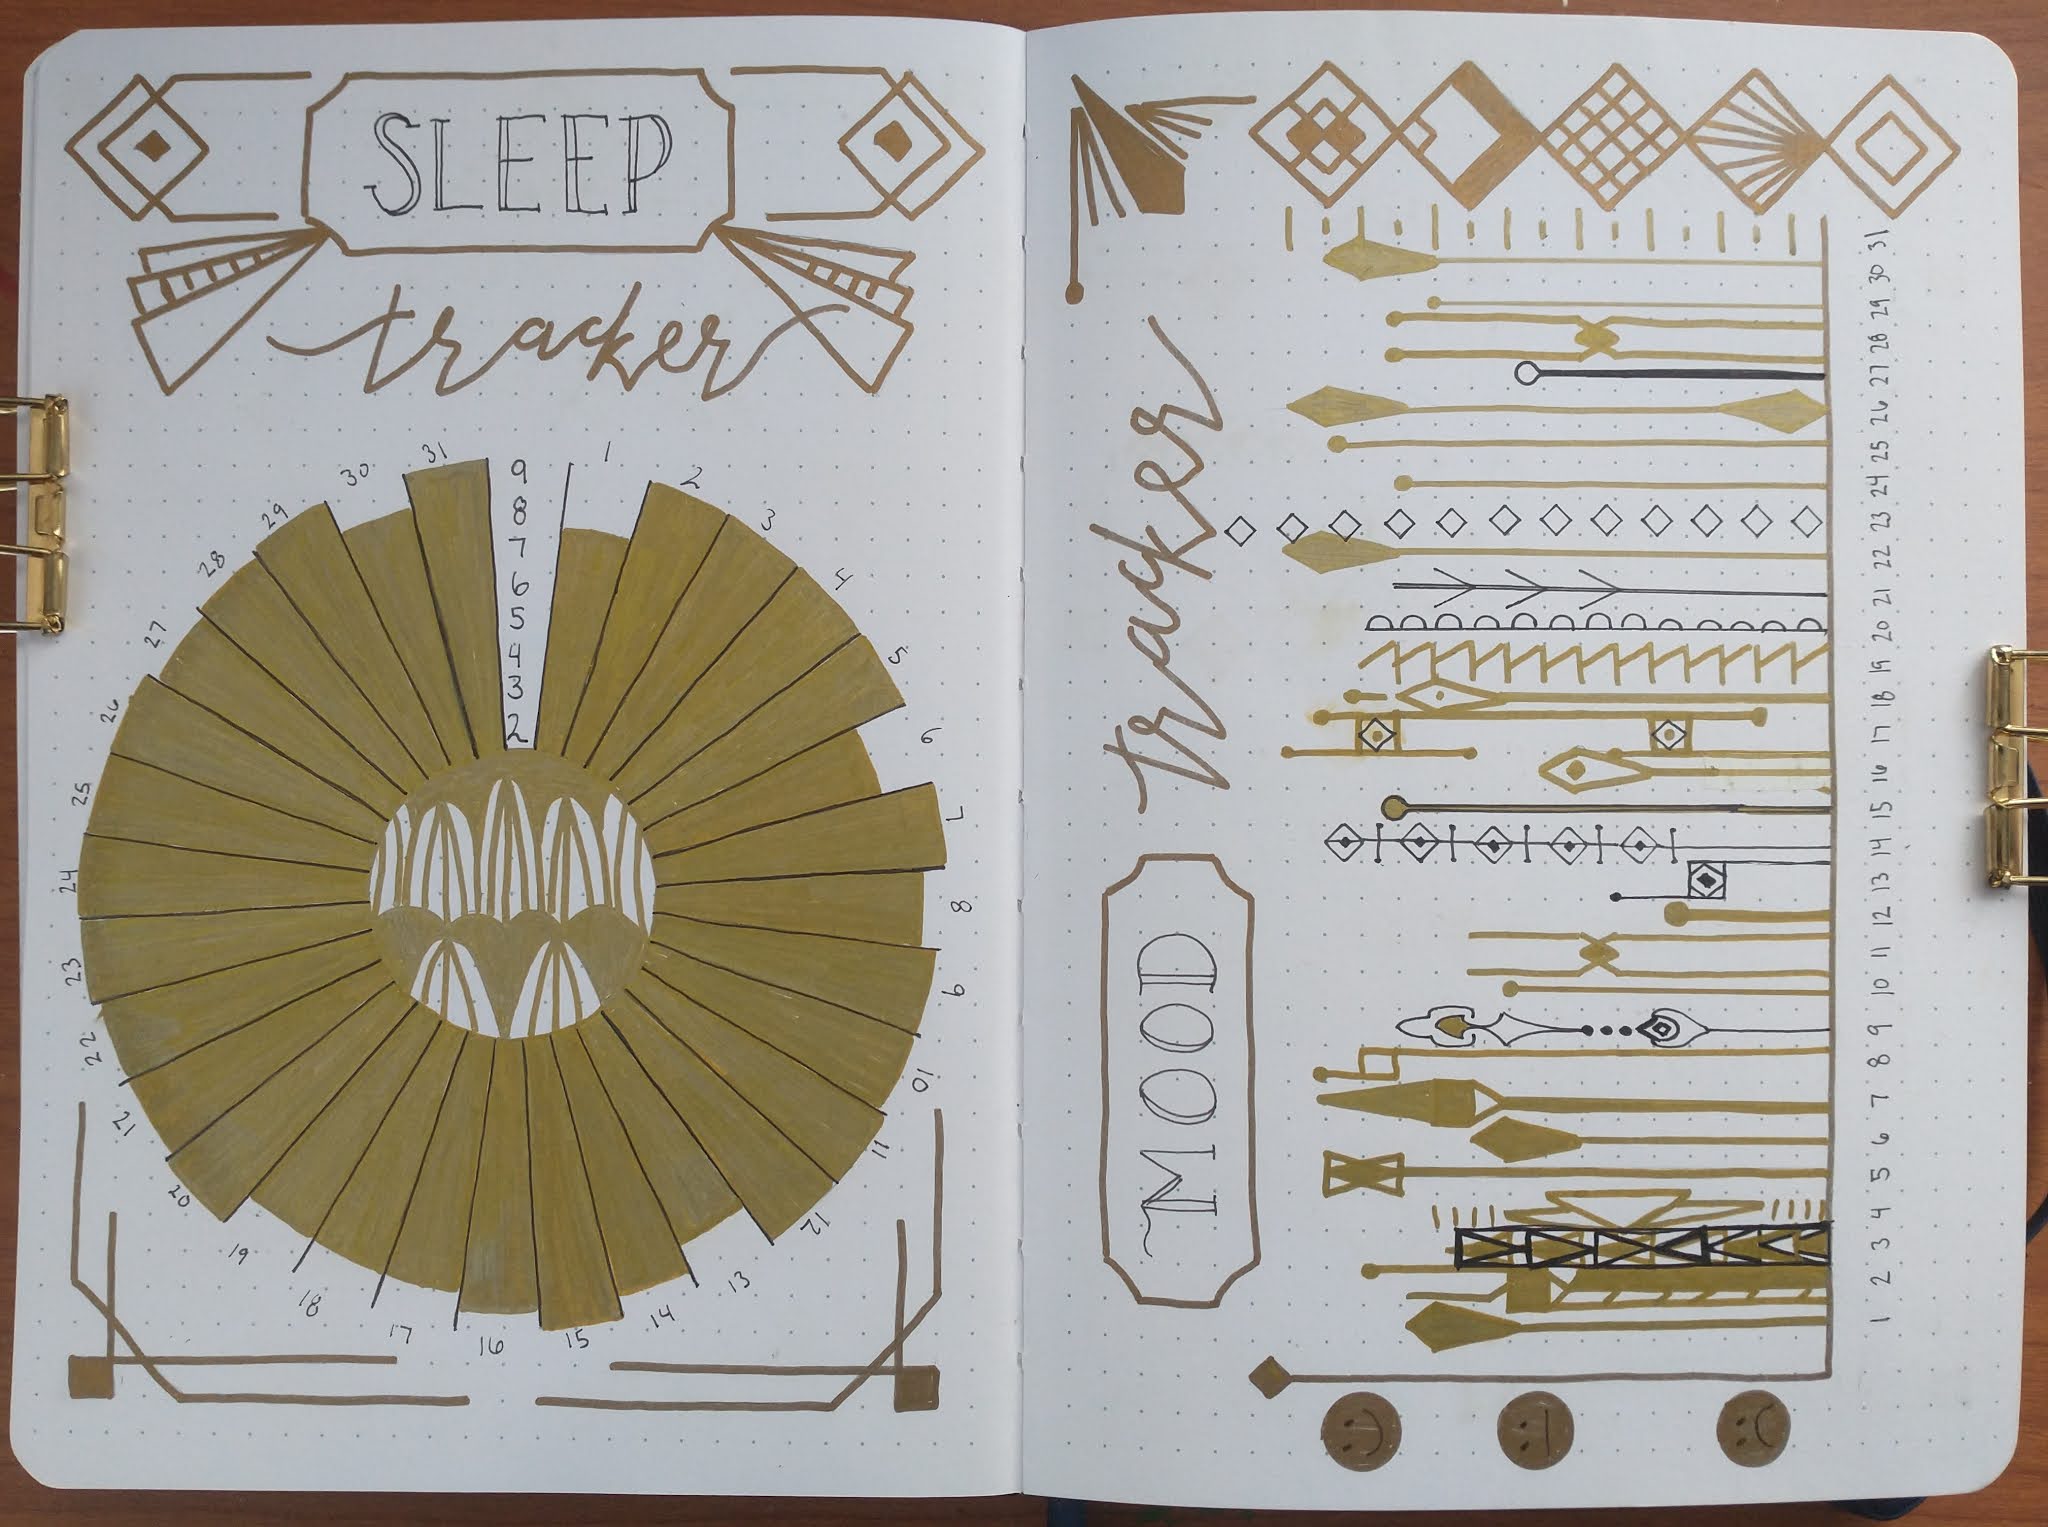 SLEEP
tracker
9
8
7
6
5
4
3
2
1
2
3
4
5
6
7
8
9
10
11
12
13
14
15
16
17
18
19
20
21
22
23
24
25
26
27
28
29
30
31
MOOD tracker
1 2 3 4 5 6 7 8 9 10 11 12 13 14 15 16 17 18 19 20 21 22 23 24 25 26 27 28 29 30 31